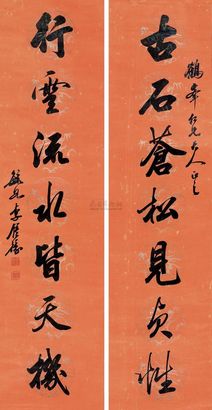 鶴仁兄大人正之
古石蒼松見貞性
行雲流水皆天機
毓如李鍾豫